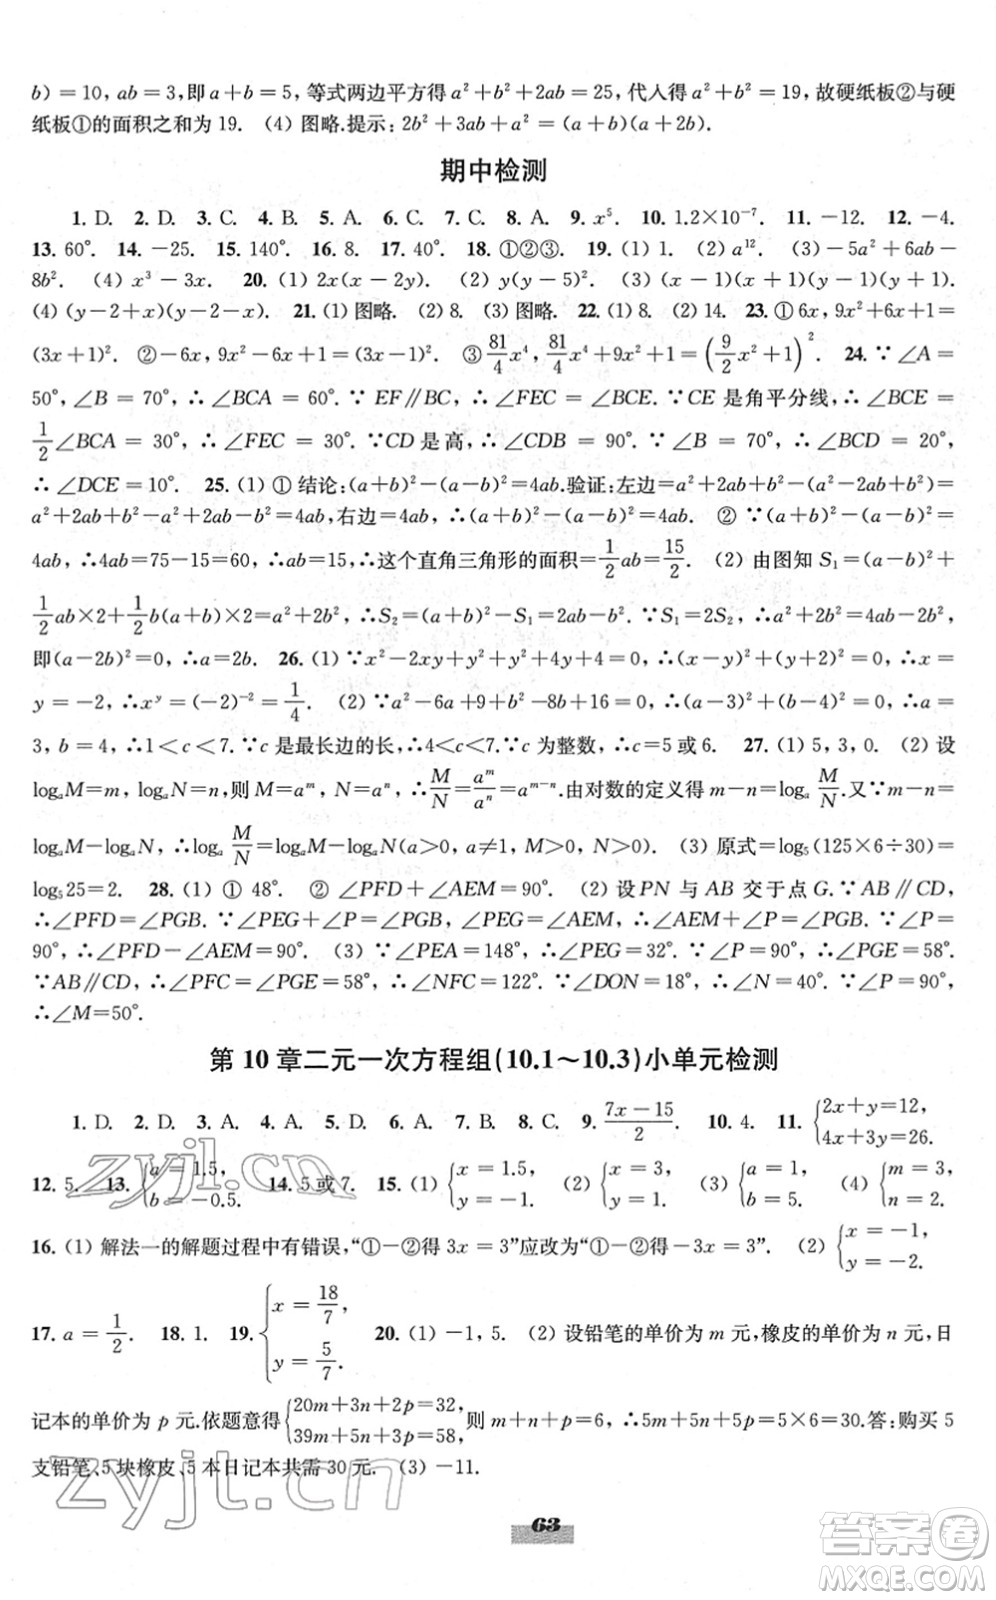 b)=10, ab=3,即a+b=5, 等式两边平方得a²+b²+2ab=25, 代人得a²+b²=19, 故硬纸板②与硬
纸板①的面积之和为19. (4) 图略.提示: 2b²+3ab+a²=(a+b)(a+2b).
期中检测
1. D. 2. D. 3. C. 4. B. 5. A. 6. C. 7. C. 8. A. 9. x⁵. 10. 1.2×10⁻⁷. 11. -12. 12. -4.
13. 60°. 14. -25. 15. 140°. 16. 8. 17. 40°. 18. ①②③. 19. (1) 1. (2) a¹². (3) -5a²+6ab-
8b². (4) x³-3x. 20. (1) 2x(x-2y). (2) y(y-5)². (3) (x-1)(x+1)(y-1)(y+1).
(4) (y-2+x)(y-2-x). 21. (1) 图略. (2) 8. (3) 图略. 22. (1) 8. (2) 14. 23. ① 6x, 9x²+6x+1=
(3x+1)². ②-6x, 9x²-6x+1=(3x-1)². ③ 81/4 x⁴, 81/4 x⁴+9x²+1=(9/2 x²+1)². 24. ∵∠A=
50°,∠B=70°,∴∠BCA=60°.∵EF∥BC,∴∠FEC=∠BCE.∵CE是角平分线,∴∠BCE=
1/2∠BCA=30°,∴∠FEC=30°.∵CD是高,∴∠CDB=90°.∵∠B=70°,∴∠BCD=20°,
∴∠DCE=10°. 25. (1) ① 结论:(a+b)²-(a-b)²=4ab.验证:左边=a²+2ab+b²-(a²-2ab+b²)=
a²+2ab+b²-a²+2ab-b²=4ab,右边=4ab,∴(a+b)²-(a-b)²=4ab. ② ∵(a+b)²-(a-b)²=
4ab,∴4ab=75-15=60,∴ab=15,∴这个直角三角形的面积=1/2 ab=15/2. (2) 由图知S₁=(a-b)²+
1/2 ab×2+1/2 b(a+b)×2=a²+2b²,∴S₂=(a+b)²-S₁=2ab-b².∵S₁=2S₂,∴a²+2b²=4ab-2b²,
即(a-2b)²=0,∴a=2b. 26. (1) ∵x²-2xy+y²+y²+4y+4=0,∴(x-y)²+(y+2)²=0,∴x=
y=-2,∴xʸ=(-2)⁻²=1/4. (2) ∵a²-6a+9+b²-8b+16=0,∴(a-3)²+(b-4)²=0,∴a=
3, b=4,∴1<c<7.∵c是最长边的长,∴4<c<7.∵c为整数,∴c=5或6. 27. (1) 5, 3, 0. (2) 设
logₐM=m, logₐN=n,则M=aᵐ, N=aⁿ,∴M/N=aᵐ/aⁿ=aᵐ⁻ⁿ.由对数的定义得m-n=logₐ M/N.又∵m-n=
logₐM-logₐN,∴logₐ M/N=logₐM-logₐN(a>0, a≠1, M>0, N>0). (3) 原式=log₅(125×6÷30)=
log₅25=2. 28. (1) ① 48°. ② ∠PFD+∠AEM=90°. (2) 设PN与AB交于点G.∵AB∥CD,
∴∠PFD=∠PGB.∵∠PEG+∠P=∠PGB, ∠PEG=∠AEM,∴∠AEM+∠P=∠PGB.∵∠P=
90°,∴∠PFD-∠AEM=90°. (3) ∵∠PEA=148°,∴∠PEG=32°.∵∠P=90°,∴∠PGE=58°.
∵AB∥CD,∴∠PFC=∠PGE=58°,∴∠NFC=122°.∵∠DON=18°,∴∠N=40°.∵∠P=90°,
∴∠M=50°.
第10章二元一次方程组(10.1～10.3)小单元检测
1. D. 2. D. 3. C. 4. A. 5. C. 6. A. 7. B. 8. C. 9. (7x-15)/2. 10. 4. 11. {2x+y=12, 4x+3y=26.
12. 5. 13. {a=1.5, b=-0.5. 14. 5或7. 15. (1) {x=1.5, y=-1. (2) {x=3, y=4. (3) {a=1, b=5. (4) {m=3, n=2.
16. (1) 解法一的解题过程中有错误,“①-②得3x=3”应改为“①-②得-3x=3”. (2) {x=-1, y=-2.
17. a=1/2. 18. 1. 19. {x=18/7, y=5/7. 20. (1) -1, 5. (2) 设铅笔的单价为m元,橡皮的单价为n元,日
记本的单价为p元.依题意得{20m+3n+2p=32, 39m+5n+3p=58,则m+n+p=6,∴5m+5n+5p=5×6=30.答:购买5
支铅笔、5块橡皮、5本日记本共需30元. (3) -11.
63
zyjl.cn
zyjl.cn
答案圈
MXQE.COM